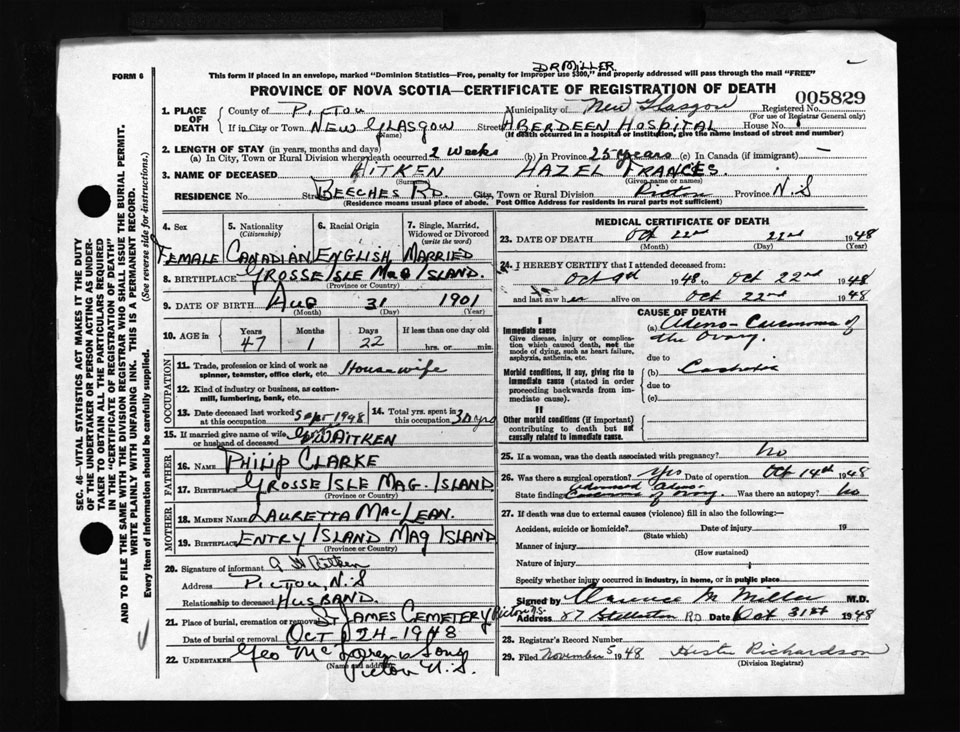 DR MILLER
FORM 6
This form if placed in an envelope, marked "Dominion Statistics—Free, penalty for improper use $300," and properly addressed will pass through the mail "FREE"
PROVINCE OF NOVA SCOTIA—CERTIFICATE OF REGISTRATION OF DEATH
005829
1. PLACE OF DEATH County of PICTOU Municipality of New Glasgow Registered No.
(For use of Registrar General only)
If in City or Town NEW GLASGOW Street ABERDEEN HOSPITAL House No.
(Name) (If death occurred in a hospital or institution, give the name instead of street and number)
2. LENGTH OF STAY (in years, months and days)
(a) In City, Town or Rural Division where death occurred 2 weeks (b) In Province 25 years (c) In Canada (if immigrant) —
3. NAME OF DECEASED AITKEN HAZEL FRANCES.
(Surname) (Given name or names)
RESIDENCE No. Street BEECHES RD. City, Town or Rural Division Pictou Province N.S
(Residence means usual place of abode. Post Office Address for residents in rural parts not sufficient)
4. Sex 5. Nationality (Citizenship) 6. Racial Origin 7. Single, Married, Widowed or Divorced (write the word)
FEMALE CANADIAN ENGLISH MARRIED
8. BIRTHPLACE GROSSE ISLE MAG ISLAND.
(Province or Country)
9. DATE OF BIRTH AUG 31 1901
(Month) (Day) (Year)
10. AGE in Years Months Days If less than one day old
47 1 22 hrs. or min.
OCCUPATION
11. Trade, profession or kind of work as spinner, teamster, office clerk, etc. Housewife
12. Kind of industry or business, as cotton-mill, lumbering, bank, etc.
13. Date deceased last worked at this occupation Sept 1948 14. Total yrs. spent in this occupation 30 yrs
15. If married give name of wife or husband of deceased AITKEN
FATHER
16. NAME PHILIP CLARKE
17. BIRTHPLACE GROSSE ISLE MAG. ISLAND
(Province or Country)
MOTHER
18. MAIDEN NAME LAURETTA MACLEAN.
19. BIRTHPLACE ENTRY ISLAND MAG ISLAND
(Province or Country)
20. Signature of informant Aitken
Address PICTOU, N.S
Relationship to deceased HUSBAND.
21. Place of burial, cremation or removal ST JAMES CEMETERY Pictou N.S.
Date of burial or removal OCT 24-1948
22. UNDERTAKER Geo Sons
(Name and address) Pictou N.S.
MEDICAL CERTIFICATE OF DEATH
23. DATE OF DEATH Oct 22nd 22nd 1948
(Month) (Day) (Year)
24. I HEREBY CERTIFY that I attended deceased from:
Oct 9th 1948 to Oct 22nd 1948
and last saw her alive on Oct 22nd 1948
CAUSE OF DEATH
I
Immediate cause
Give disease, injury or complication which caused death, not the mode of dying, such as heart failure, asphyxia, asthenia, etc.
(a) Adeno-Carcinoma of the Ovary.
due to
Morbid conditions, if any, giving rise to immediate cause (stated in order proceeding backwards from immediate cause).
(b) Cachexia
due to
(c)
II
Other morbid conditions (if important) contributing to death but not causally related to immediate cause.
25. If a woman, was the death associated with pregnancy? No
26. Was there a surgical operation? Yes Date of operation Oct 14th 1948
State finding Advanced Adeno-Carcinoma of Ovary. Was there an autopsy? No
27. If death was due to external causes (violence) fill in also the following:—
Accident, suicide or homicide? Date of injury 19
(State which)
Manner of injury
(How sustained)
Nature of injury
Specify whether injury occurred in industry, in home, or in public place
Signed by Clarence M Miller M.D.
Address 87 Stellarton RD Date Oct 31st 1948
28. Registrar's Record Number
29. Filed November 5 1948 Hester Richardson
(Division Registrar)
SEC. 46—VITAL STATISTICS ACT MAKES IT THE DUTY
OF THE UNDERTAKER OR PERSON ACTING AS UNDER-
TAKER TO OBTAIN ALL THE PARTICULARS REQUIRED
IN THE "CERTIFICATE OF REGISTRATION OF DEATH"
AND TO FILE THE SAME WITH THE DIVISION REGISTRAR WHO SHALL ISSUE THE BURIAL PERMIT.
WRITE PLAINLY WITH UNFADING INK. THIS IS A PERMANENT RECORD.
Every item of information should be carefully supplied. (See reverse side for instructions.)